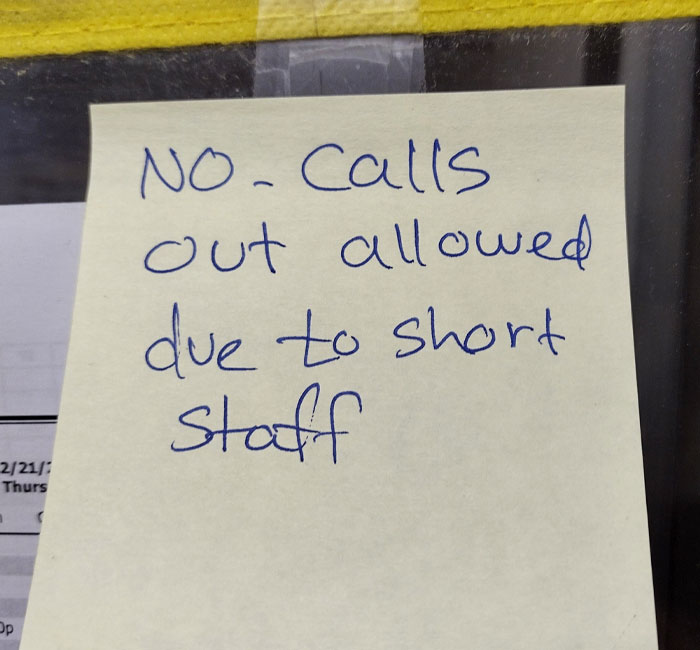 NO - Calls
out allowed
due to short
Staff
2/21/
Thurs